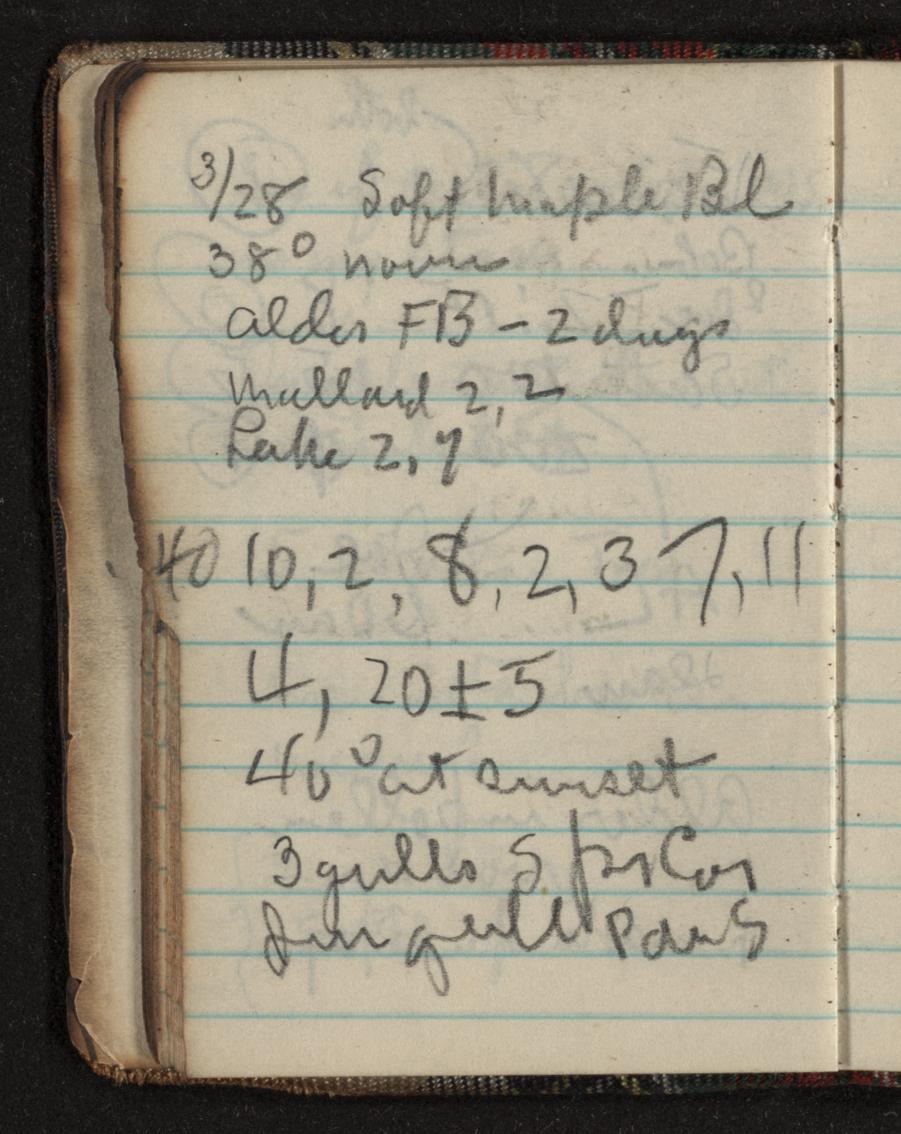 3/28 Soft maple Bl
38° noon
alder FB - 2 days
mallard 2, 2
Lake 2, 7
40 10, 2, 8, 2, 3 7, 11
4, 20±5
40° at sunset
3 gulls S
gull